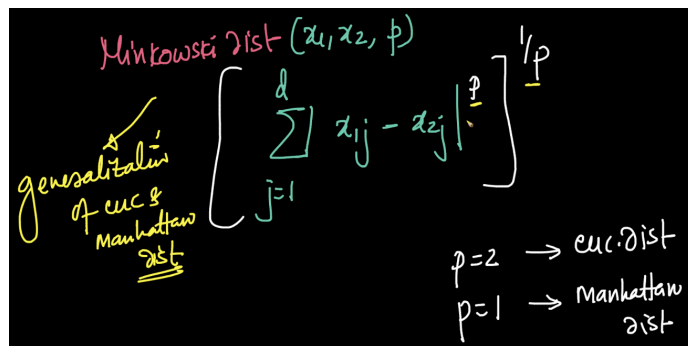 Minkowski dist (x₁, x₂, p)
[ d∑j=1 | x₁j - x₂j |^p ]^1/p
generalization
of euc &
Manhattan
dist
p=2 → euc. dist
p=1 → Manhattan
dist